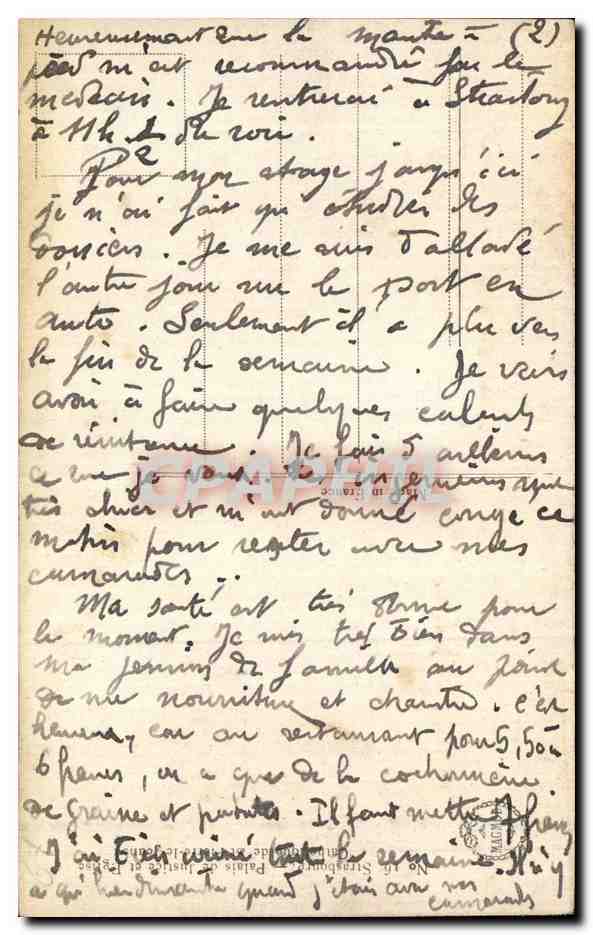 Heureusement que la montée à (2)
pied m'est recommandée par le
médecin. Je rentrerai à Strasbourg
à 11h 1/2 du soir.
Pour mon stage jusqu'ici
je n'ai fait qu'étudier des
dossiers. Je me suis balladé
l'autre jour sur le port en
auto. Seulement il a plu vers
la fin de la semaine. Je vais
avoir à faire quelques calculs
de résistance. Je fais d'ailleurs
ce que je veux. Les ingénieurs sont
très chics et m'ont donné congé ce
matin pour rester avec mes
camarades.
Ma santé est très bonne pour
le moment. Je suis très bien dans
ma pension de famille au point
de vue nourriture et chambre. C'est
heureux, car au restaurant pour 5,50 à
6 francs, on a que de la cochonnerie
de graisse et patates. Il faut mettre 7 francs
J'ai bien mangé tout la semaine. Il n'y
a qu' quand j'étais avec nos
camarades
CPARAMA
Made in France
No 16 Strasbourg
Palais de Justice et l'Eglise
St-Pierre-le-Jeune